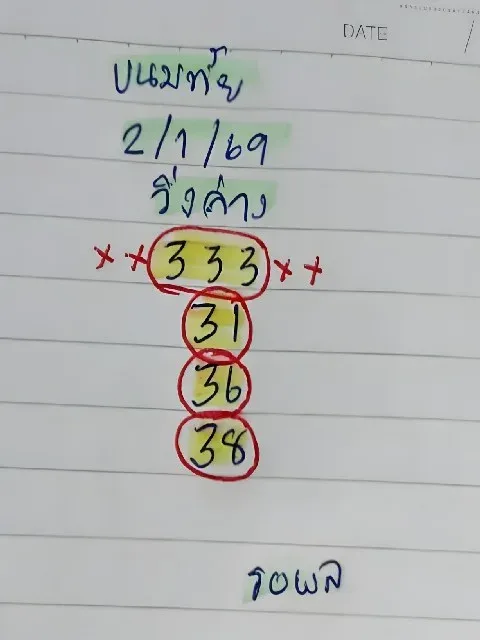 DATE
ขนมทัย
2/1/69
วิ่งล่าง
××333××
31
36
38
รอผล